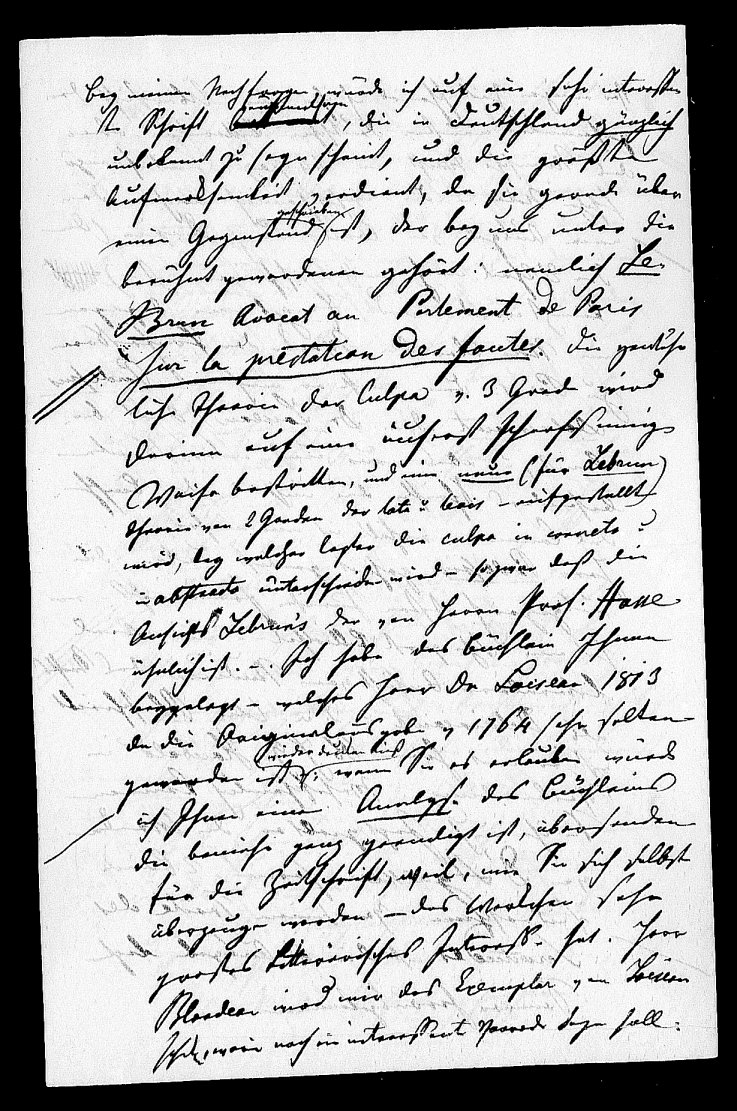 bey meinen Nachfragen wurde ich auf eine sehr interessan
te Schrift aufmerksam, die in Deutschland gänzlich
unbekannt zu seyn scheint, und die größte
Aufmerksamkeit verdient, da sie gerade über
einen Gegenstand geschrieben ist, der bey uns unter die
berühmt gewordenen gehört: nemlich Le
Brun Avocat au Parlement de Paris
sur la prestation des fautes. Die gewöhn
liche Theorie der Culpa v. 3 Grade wird
darinn auf eine äußerst scharfsinnige
Weise bestritten, und eine neue (für Lebrun)
Theorie von 2 Graden der lata u levis – aufgestellt
wird, bey welcher letzter die culpa in concreto u
in abstracto unterschieden wird – so zwar daß die
Ansicht Lebrun's der von Herrn Prof. Hasse
ähnlich ist. –. Ich habe das Büchlein Ihnen
beygelegt – welches Herr Dr Loiseau 1813
da die Originalausgabe v 1764 sehr selten
geworden ist wieder drucken ließ; wenn Sie es erlauben würde
ich Ihnen eine Analyse des Büchleins
die beinahe ganz geendigt ist, übersenden
für die Zeitschrift, weil, wie Sie sich selbst
überzeugen werden – das Werkchen sehr
großes litterärisches Interesse hat. Herr
Blondeau wird mir das Exemplar von Loiseau
worin noch eine interessante Vorrede seyn soll.